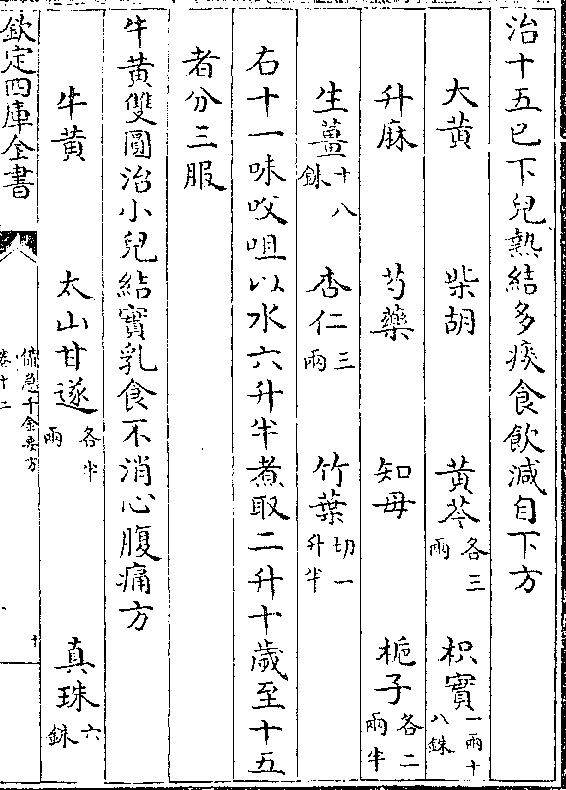 治十五已下兒熱結多痰食飲減自下方
大黄 柴胡 黄芩各三兩 枳實一兩十八銖
升麻 芍藥 知母 梔子各二兩半
生薑十八銖 杏仁三兩 竹葉切一升半
右十一味㕮咀以水六升半煮取二升十歲至十五
者分三服
牛黄雙圓治小兒結實乳食不消心腹痛方
牛黄 太山甘遂各半兩 真珠六銖
欽定四庫全書
備急千金要方
卷十二